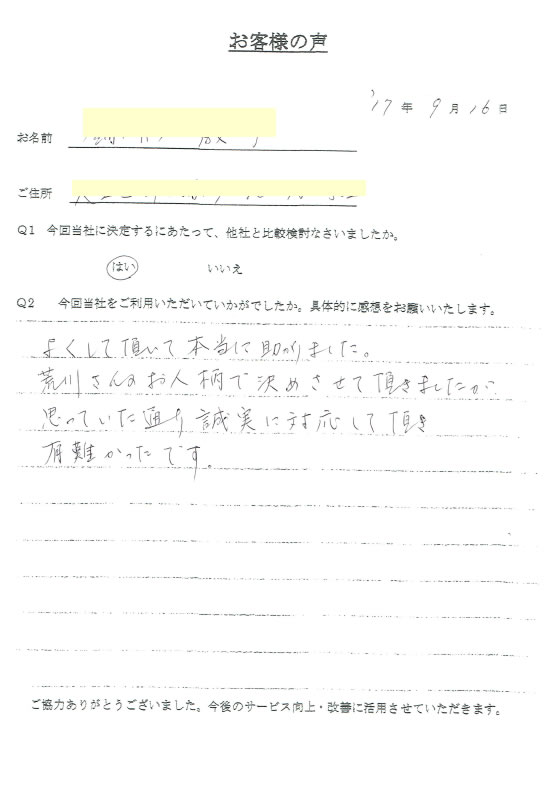 お客様の声
'17年 9月 16日
お名前
ご住所
Q1 今回当社に決定するにあたって、他社と比較検討なさいましたか。
はい いいえ
Q2 今回当社をご利用いただいていかがでしたか。具体的に感想をお願いいたします。
よくして頂いて本当に助かりました。
荒川さんのお人柄で決めさせて頂きましたが
思っていた通り誠実に対応して頂き
有難かったです。
ご協力ありがとうございました。今後のサービス向上・改善に活用させていただきます。